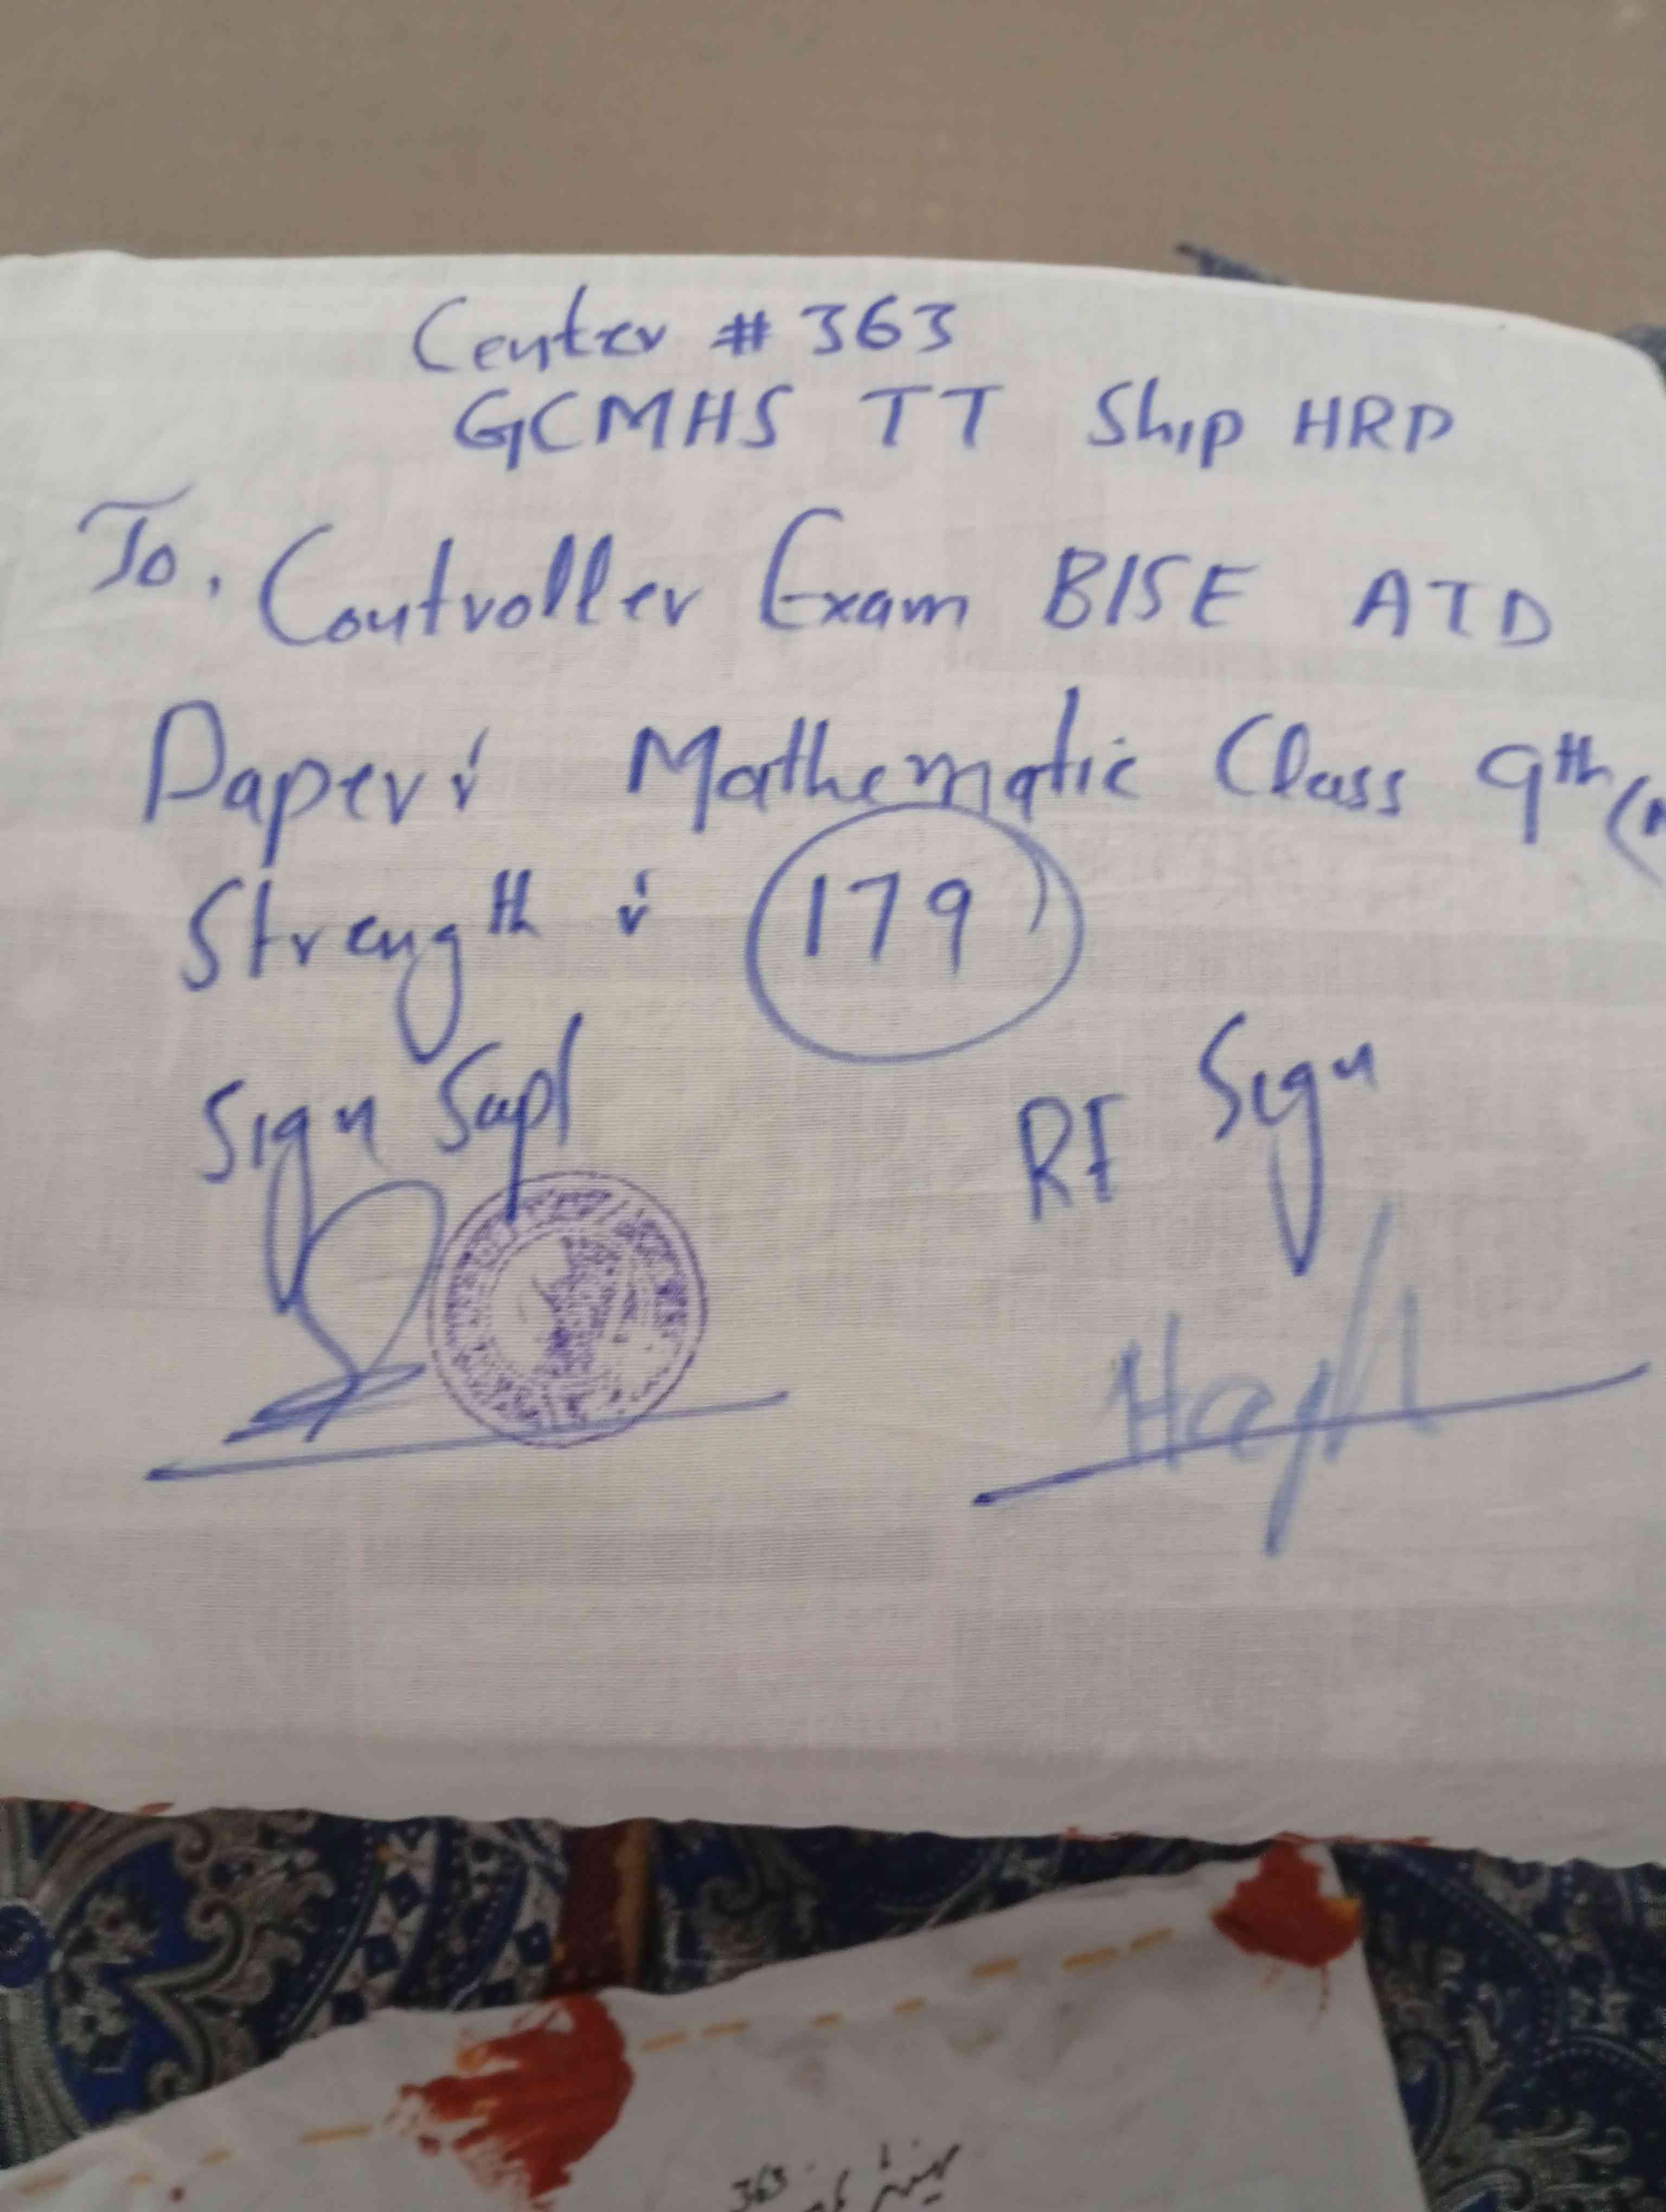 Center # 363
GCMHS TT Ship HRP
To, Controller Exam BISE ATD
Paper: Mathematic Class 9th
Strength: 179
Sign Supt
RI Sign
363